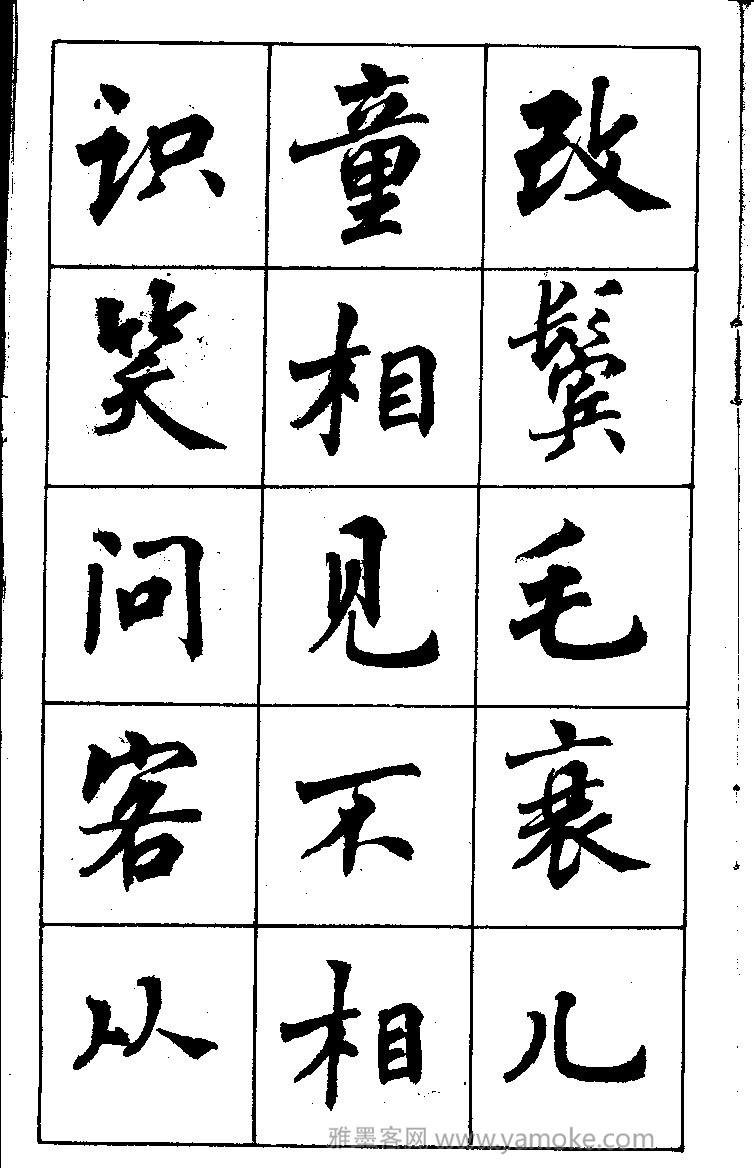 改鬓毛衰儿
童相见不相
识笑问客从
雅墨客网 www.yamoke.com